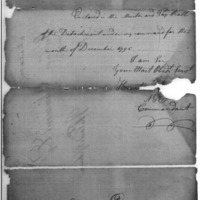 Enclosed is the Muster and Pay Roll
of the Detachment under my command for the
month of December 1795
I am Sir
Your Most Obedt Servt
Commandant